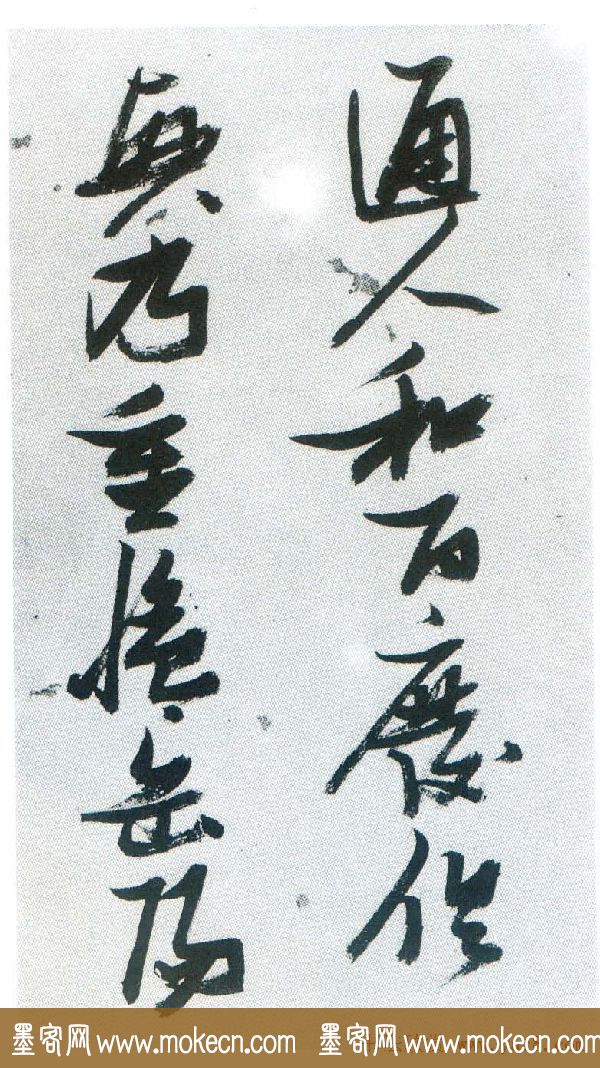 通人和百廢俱
興乃重脩岳陽
墨客网 www.mokecn.com 墨客网 www.mokecn.com